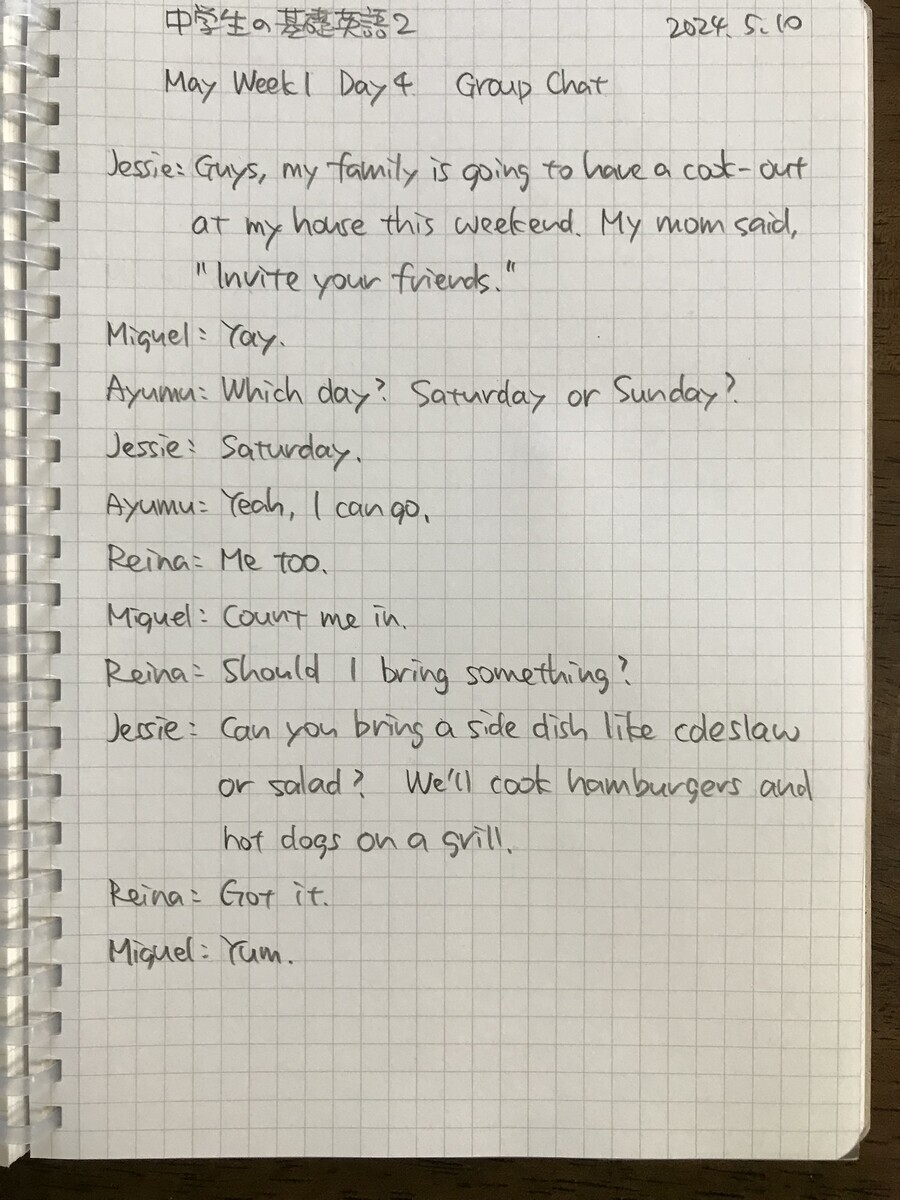 中学生の基礎英語2 2024.5.10
May Week1 Day4 Group Chat
Jessie: Guys, my family is going to have a cook-out
at my house this weekend. My mom said,
"Invite your friends."
Miguel: Yay.
Ayumu: Which day? Saturday or Sunday?
Jessie: Saturday.
Ayumu: Yeah, I can go.
Reina: Me too.
Miguel: Count me in.
Reina: Should I bring something?
Jessie: Can you bring a side dish like coleslaw
or salad? We'll cook hamburgers and
hot dogs on a grill.
Reina: Got it.
Miguel: Yum.